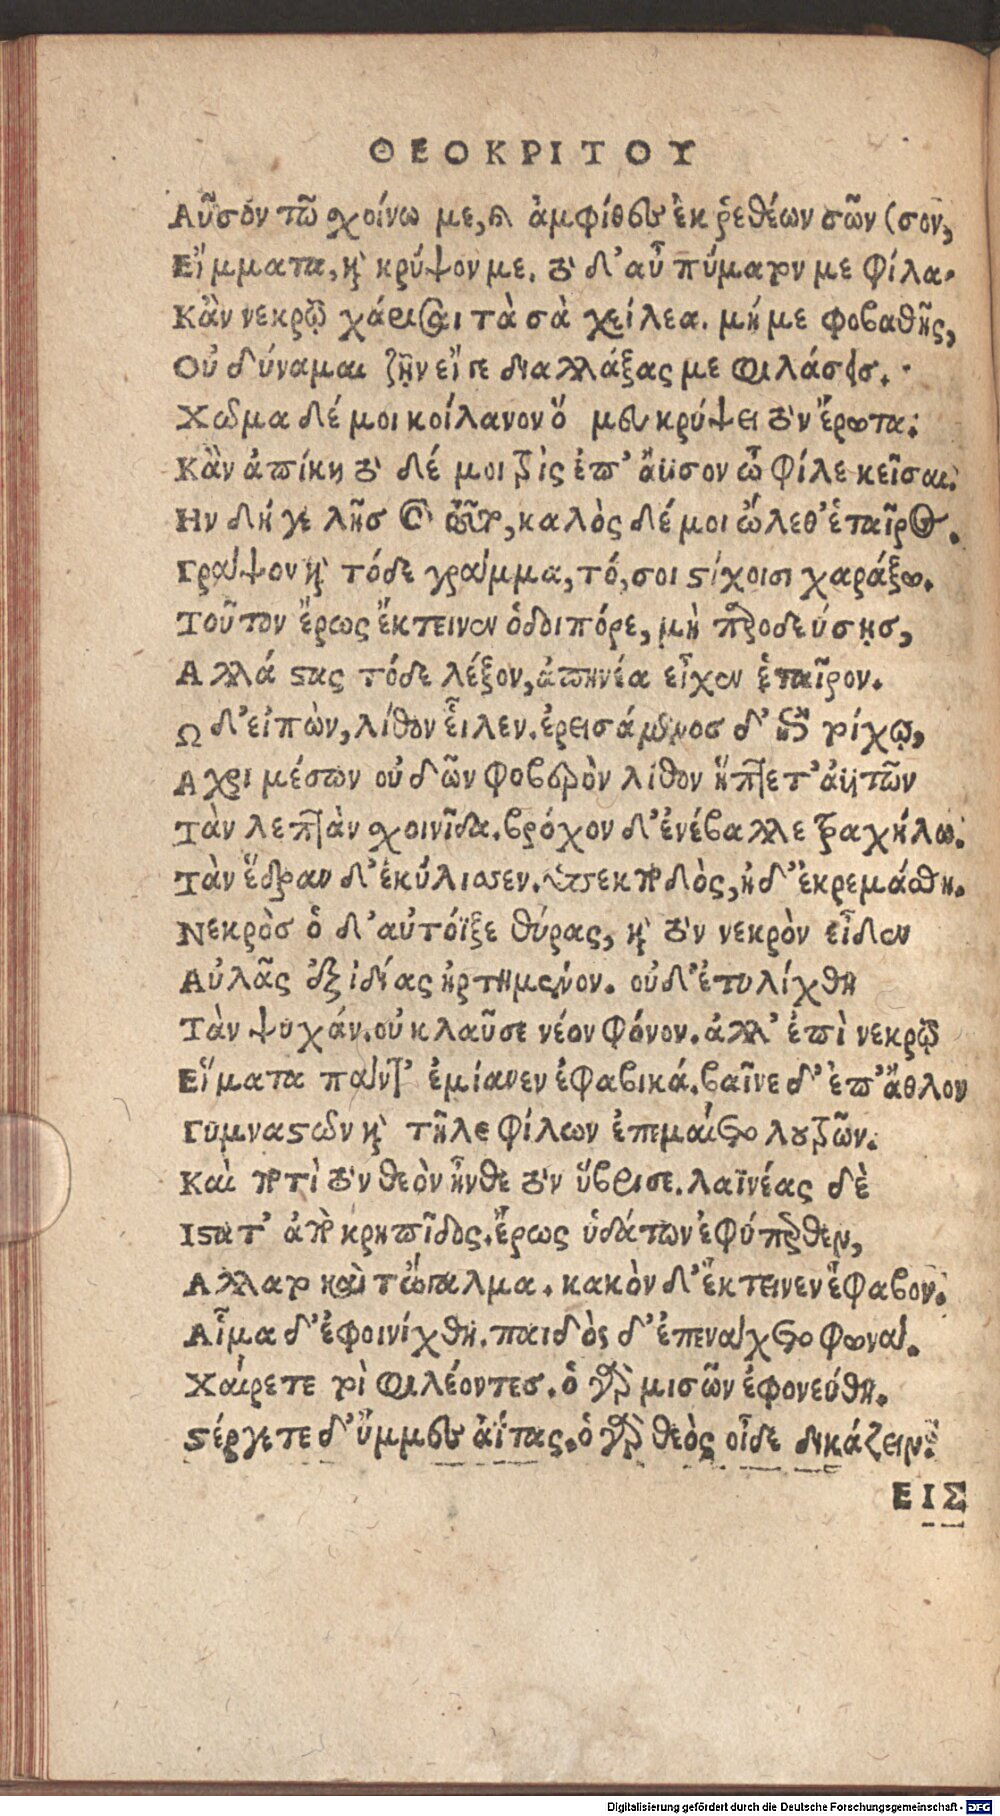 ΘΕΟΚΡΙΤΟΥ
Αὖσον τῶ χοίνω με, ϗ ἀμφίθου ἐκ ῥεθέων σῶν (σον,
Εἵμματα, ϗ κρύψον με. τὸ δ' αὖ πύματον με φίλα.
Κἂν νεκρῷ χάρισαι τὰ σὰ χείλεα. μή με φοβαθῇς,
Οὐ δύναμαι ζῇν εἴπε διαλλάξας με φιλάσεις.
Χῶμα δέ μοι κοίλανον ὅ μου κρύψει τὸν ἔρωτα.
Κἂν ἀπίκῃ τὸ δέ μοι τρὶς ἐπ' ἄϋσον ὦ φίλε κεῖσαι.
Ην δή γε λῇς καὶ τοῦτο, καλὸς δέ μοι ὤλεθ' ἑταῖρος.
Γράψον ϗ τόδε γράμμα, τό, σοι στίχοισι χαράξω.
Τοῦτον ἔρως ἔκτεινεν ὁδοιπόρε, μὴ παροδεύσῃς,
Αλλά στας τόδε λέξον, ἀπηνέα εἶχεν ἑταῖρον.
Ωδ' εἰπὼν, λίθον εἷλεν. ἐρεισάμενος δ' ἐπὶ τοίχῳ,
Αχρι μέσσων οὐδῶν φοβερὸν λίθον ἥπτετ' ἀϋτῶν
Τὰν λεπτὰν χοινῖδα. βρόχον δ' ἐνέβαλλε τραχήλω.
Τὰν ἕδραν δ' ἐκύλισεν. ὑπὲκ ποδὸς, ἠδ' ἐκρεμάσθη.
Νεκρὸς ὁ δ' αὐτόϊξε θύρας, ϗ τὸν νεκρὸν εἶδεν
Αὐλᾶς ἐξ ἰδίας ἠρτημένον. οὐδ' ἐτυλίχθη
Τὰν ψυχάν. οὐ κλαῦσε νέον φόνον. ἀλλ' ἐπὶ νεκρῷ
Εἵματα πάντ' ἐμίανεν ἐφαβικά. βαῖνε δ' ἐπ' ἄθλον
Γυμναστῶν ϗ τῆλε φίλων ἐπεμαίετο λουτρῶν.
Καὶ ποτὶ τὸν θεὸν ἦνθε τὸν ὕβρισε. λαϊνέας δὲ
Ιστατ' ἀπὸ κρηπῖδος. ἔρως ὑδάτων ἐφύπερθεν,
Αλλατο καὶ τὤγαλμα. κακὸν δ' ἔκτεινεν ἔφαβον.
Αἷμα δ' ἐφοινίχθη. παιδὸς δ' ἐπενάχετο φωνά.
Χαίρετε τοὶ φιλέοντες. ὁ γὰρ μισῶν ἐφονεύθη.
Στέργετε δ' ὔμμες ἀΐτας. ὁ γὰρ θεὸς οἶδε δικάζειν.
ΕΙΣ
Digitalisierung gefördert durch die Deutsche Forschungsgemeinschaft - DFG